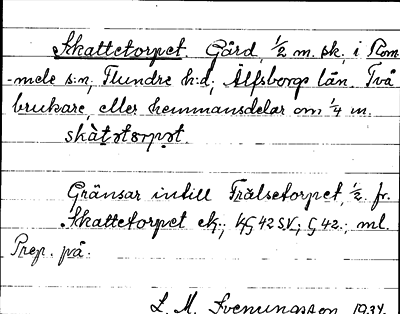 Skattetorpet. Gård, 1/2 m. sk., i Rom-
mele s:n, Flundre h:d, Älfsborgs län. Två
brukare, eller hemmansdelar om 1/4 m.
skàt̬ətɷrpət.
Gränsar intill Trälsetorpet, 1/2 fr.
Skattetorpet ek.; 42 SV; 42.; ml.
Prep. på.
L. M. Svenungsson 1934.